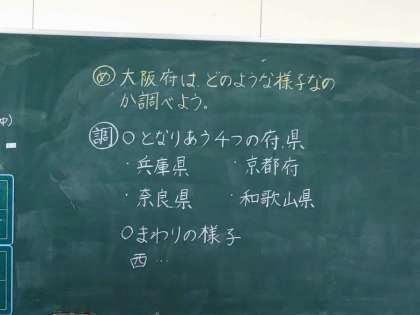 め 大阪府は、どのような様子なの
か調べよう。
調 〇となりあう4つの府、県
・兵庫県 ・京都府
・奈良県 ・和歌山県
〇まわりの様子
西…